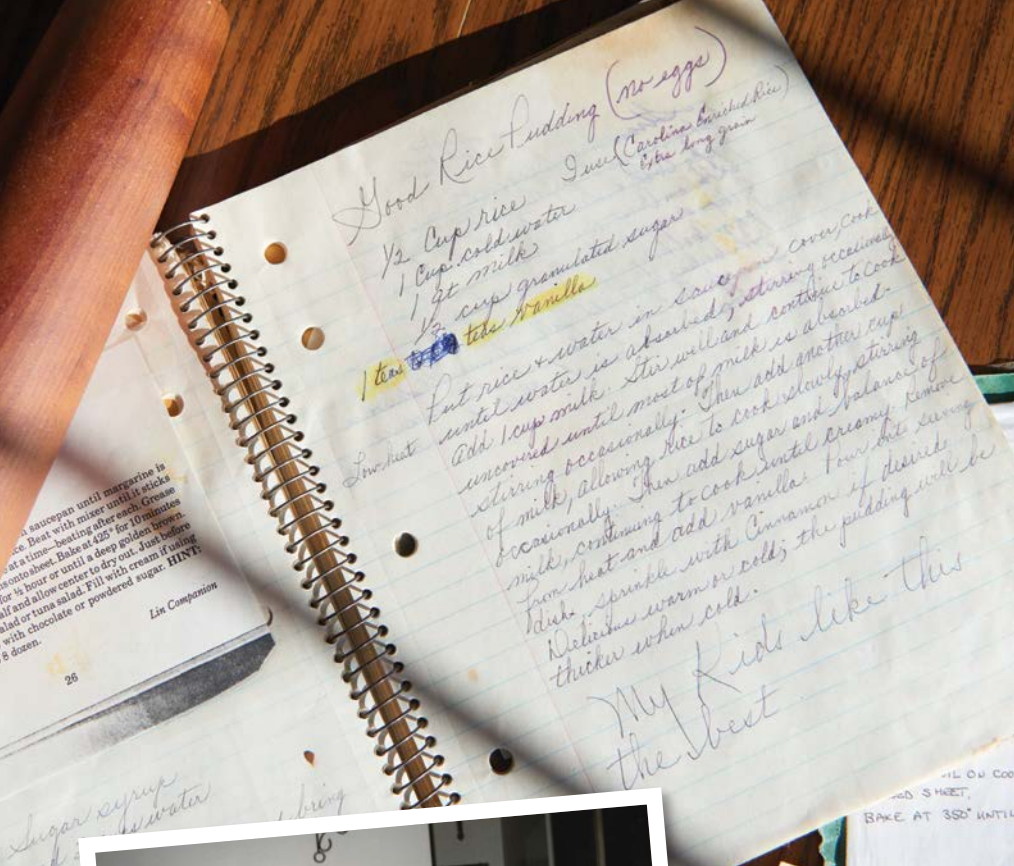 Good Rice Pudding (no eggs)
I use (Carolina Enriched Rice)
Extra long grain
1/2 Cup rice
1 Cup cold water
1 qt milk
1/2 cup granulated sugar
1 teas teas vanilla
Low heat
Put rice & water in sauce pan cover, Cook
until water is absorbed, stirring occasionally
add 1 cup milk. Stir well and continue to cook
uncovered until most of milk is absorbed.
stirring occasionally. Then add another cup
of milk, allowing rice to cook slowly, stirring
occasionally. Then add sugar and balance of
milk, continuing to cook until creamy. Remove
from heat and add vanilla. Pour into serving
dish. sprinkle with Cinnamon if desired.
Delicious warm or cold; the pudding will be
thicker when cold.
My Kids like this
the best
saucepan until margarine is
Beat with mixer until it sticks
at a time—beating after each. Grease
onto sheet. Bake at 425° for 10 minutes
for ½ hour or until a deep golden brown.
and allow center to dry out. Just before
or tuna salad. Fill with cream if using
with chocolate or powdered sugar. HINT:
8 dozen.
Lin Companion
26
Sugar syrup
water
bring
ON
SHEET,
BAKE AT 350° UNTIL